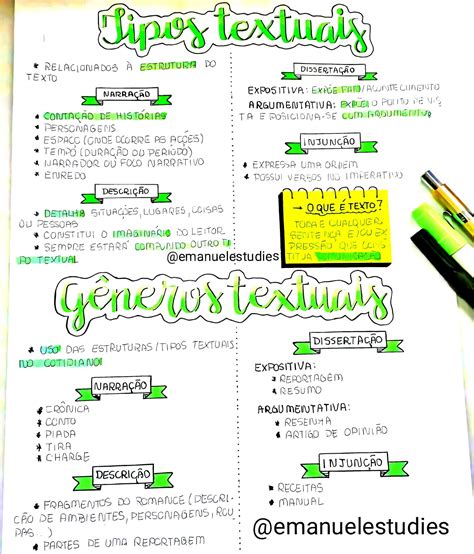 Tipos textuais
* RELACIONADOS À ESTRUTURA DO
TEXTO
NARRAÇÃO
* CONTAÇÃO DE HISTÓRIAS
* PERSONAGENS
* ESPAÇO (ONDE OCORRE AS AÇÕES)
* TEMPO (DURAÇÃO OU PERÍODO)
* NARRADOR OU FOCO NARRATIVO
* ENREDO
DESCRIÇÃO
* DETALHA SITUAÇÕES, LUGARES, COISAS
OU PESSOAS
* CONSTITUI O IMAGINÁRIO DO LEITOR
* SEMPRE ESTARÁ COMPONDO OUTRO TI
PO TEXTUAL
DISSERTAÇÃO
EXPOSITIVA: EXPÕE FATO/ACONTECIMENTO
ARGUMENTATIVA: EXPÕE O PONTO DE VIS
TA E POSICIONA-SE COM ARGUMENTOS
INJUNÇÃO
* EXPRESSA UMA ORDEM
* POSSUI VERBOS NO IMPERATIVO
→ O QUE É TEXTO?
TODA E QUALQUER
SENTENÇA E/OU EX
PRESSÃO QUE CONS
TITUA COMUNICAÇÃO
@emanuelestudies
Gêneros textuais
* USO DAS ESTRUTURAS/TIPOS TEXTUAIS
NO COTIDIANO
NARRAÇÃO
* CRÔNICA
* CONTO
* PIADA
* TIRA
* CHARGE
DESCRIÇÃO
* FRAGMENTOS DO ROMANCE (DESCRI-
ÇÃO DE AMBIENTES, PERSONAGENS, ROU
PAS...)
* PARTES DE UMA REPORTAGEM
DISSERTAÇÃO
EXPOSITIVA:
* REPORTAGEM
* RESUMO
ARGUMENTATIVA:
* RESENHA
* ARTIGO DE OPINIÃO
INJUNÇÃO
* RECEITAS
* MANUAL
@emanuelestudies